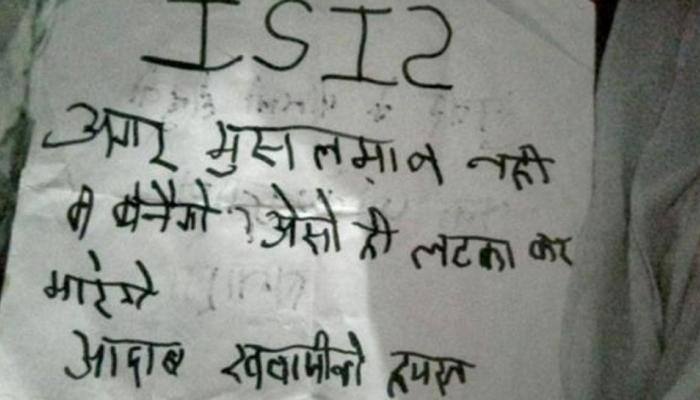 ISIS
अगर मुसलमान नही
बनेगो ऐसो ही लटका कर
मारेगे
आदाब